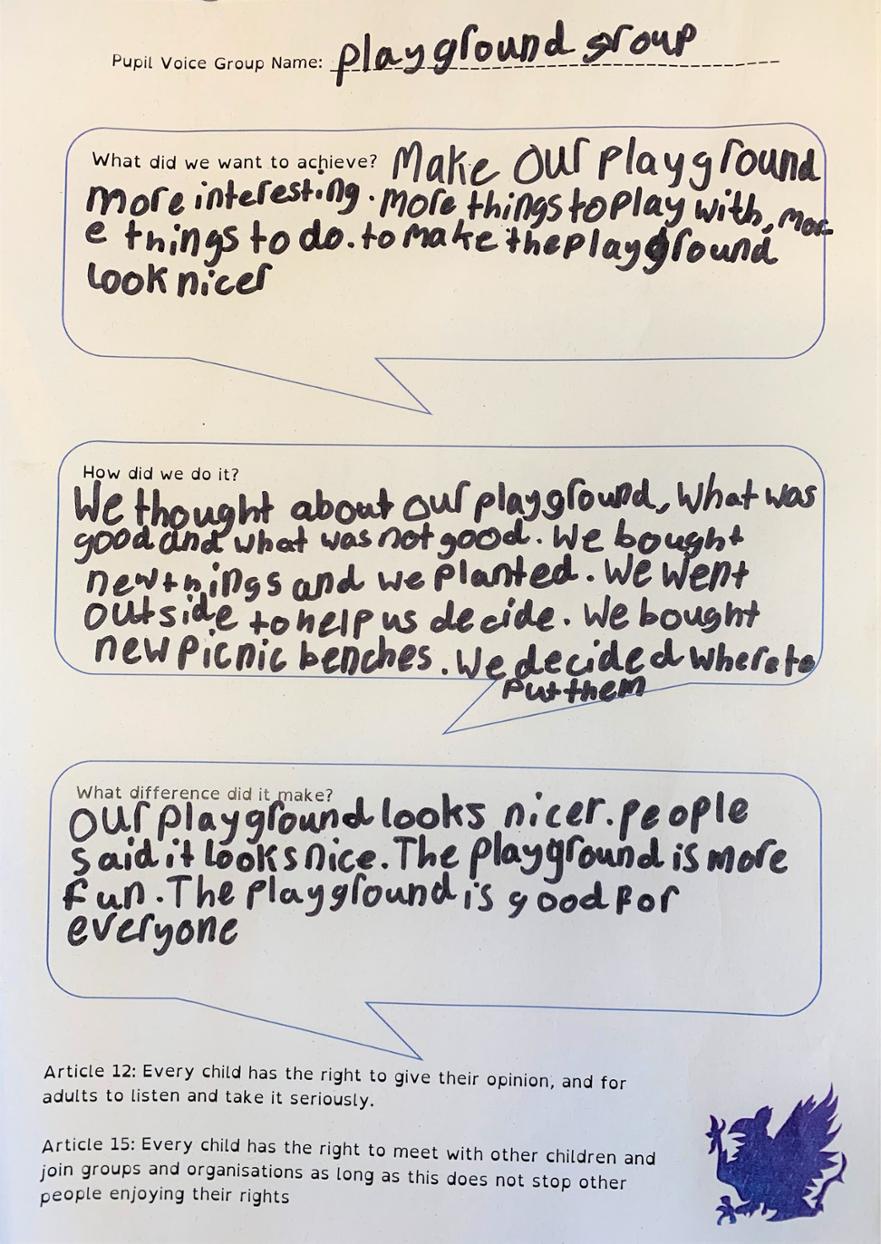 Pupil Voice Group Name: playground group
What did we want to achieve? Make our playground
more interesting. More things to play with, mor
e things to do. to make the playground
look nicer
How did we do it?
We thought about our playground, What was
good and what was not good. We bought
new things and we planted. We went
outside to help us decide. We bought
new picnic benches. We decided where to
put them
What difference did it make?
our playground looks nicer. people
said it looks nice. The playground is more
fun. The playground is good for
everyone
Article 12: Every child has the right to give their opinion, and for
adults to listen and take it seriously.
Article 15: Every child has the right to meet with other children and
join groups and organisations as long as this does not stop other
people enjoying their rights